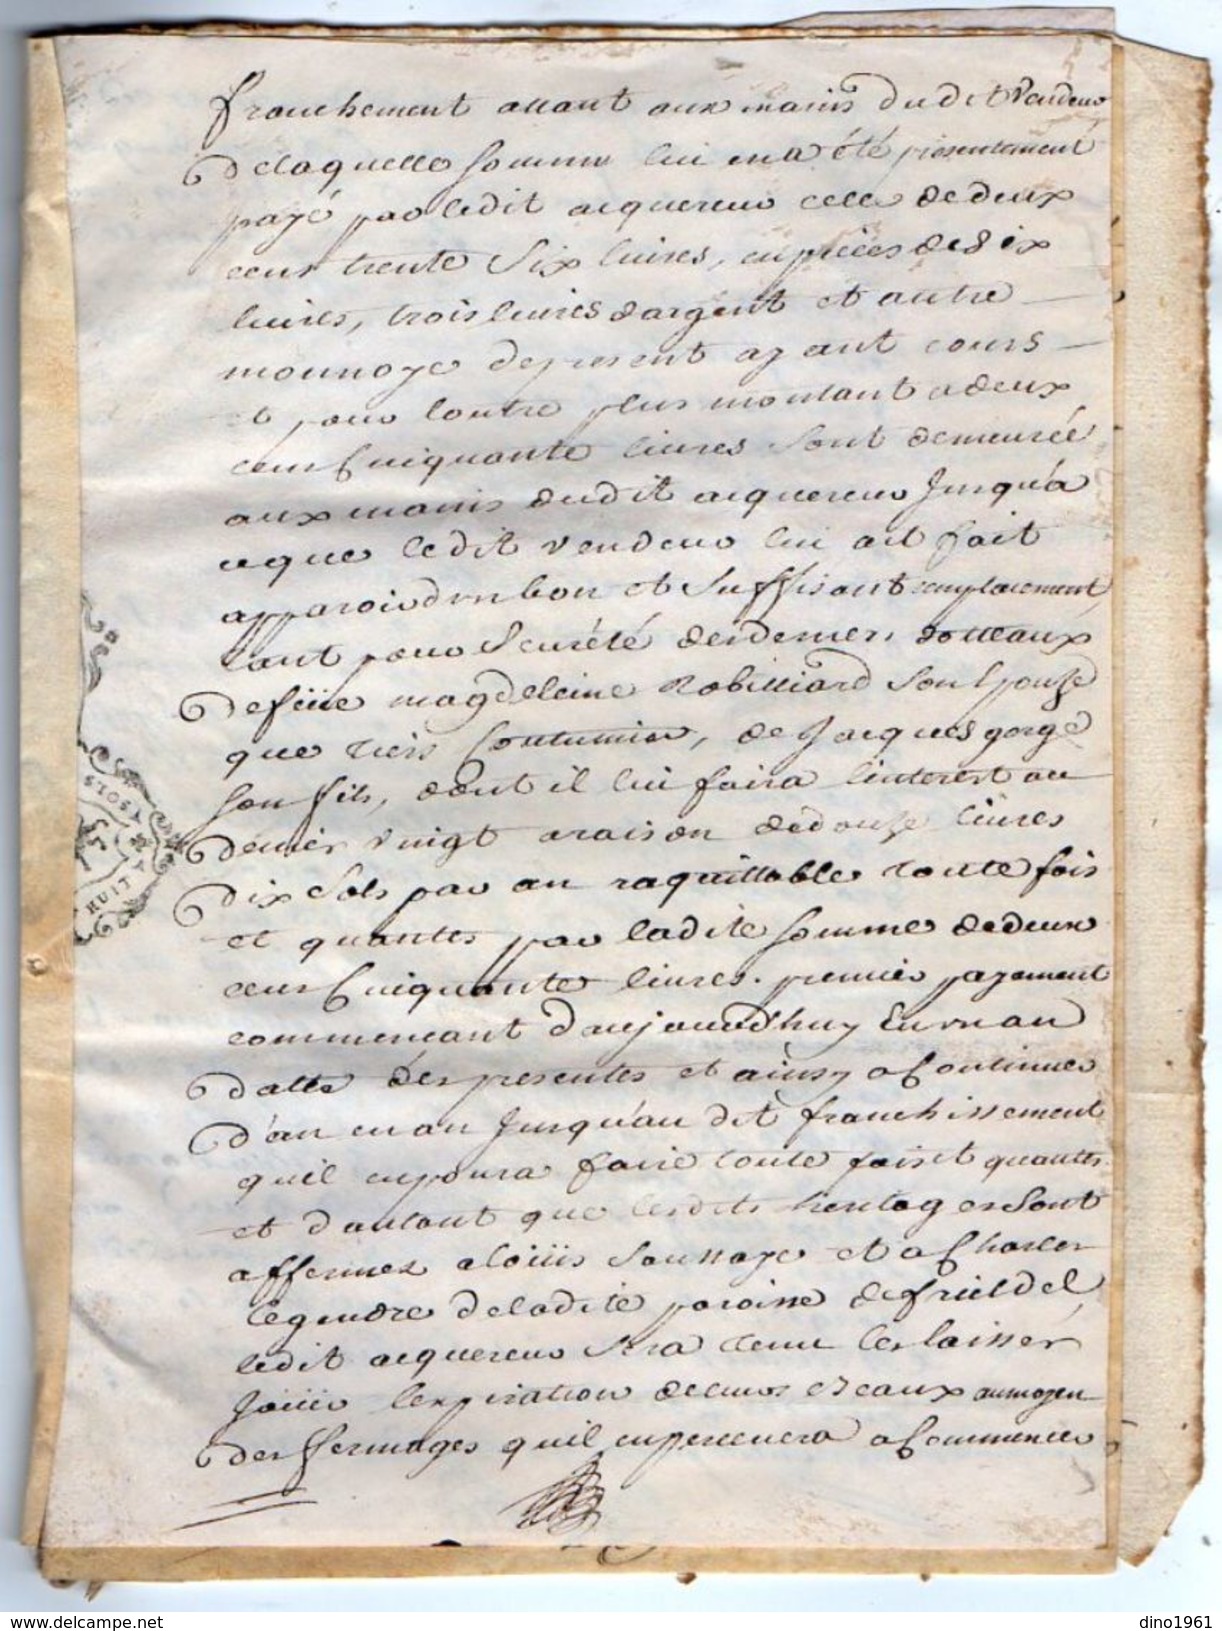 franchement allant aux mains dudit vendeur
de laquelle somme lui en a été présentement
payé par ledit acquereur celle de deux
cens trente six livres, en pièces de six
livres, trois livres d'argent et autre
monnoye de present ayant cours
et pour l'outre plus montant a deux
cens Cinquante livres sont demeurée
aux mains dudit acquereur Jusqu'a
ce que ledit vendeur lui ait fait
apparoir d'un bon et suffisant remplacement,
tant pour seureté des deniers dotteaux
de feüe magdeleine Robilliard son Epouze
que tiers Coutumier, de Jacques gorgé
son fils, dont il lui faira l'interest au
denier vingt a raison de douze livres
dix sols par an raquittable toute fois
et quantes par ladite somme de deux
cens Cinquante livres. premier payement
commencant d'aujourd'huy En un an
datte des presentes et ainsy a Continuer
d'an en an Jusqu'au dit franchissement
quil en poura faire toute fois et quantes
et d'autant que lesdits heritages sont
affermez a loüis Saunaye et a Charles
legendre de ladite paroisse de frieldel,
ledit acquereur sera tenu les laisser
Joüir l'expiration de leurs Beaux au moyen
des fermages quil en percevera a Commencer
SOLS
HUIT
www.delcampe.net
dino1961